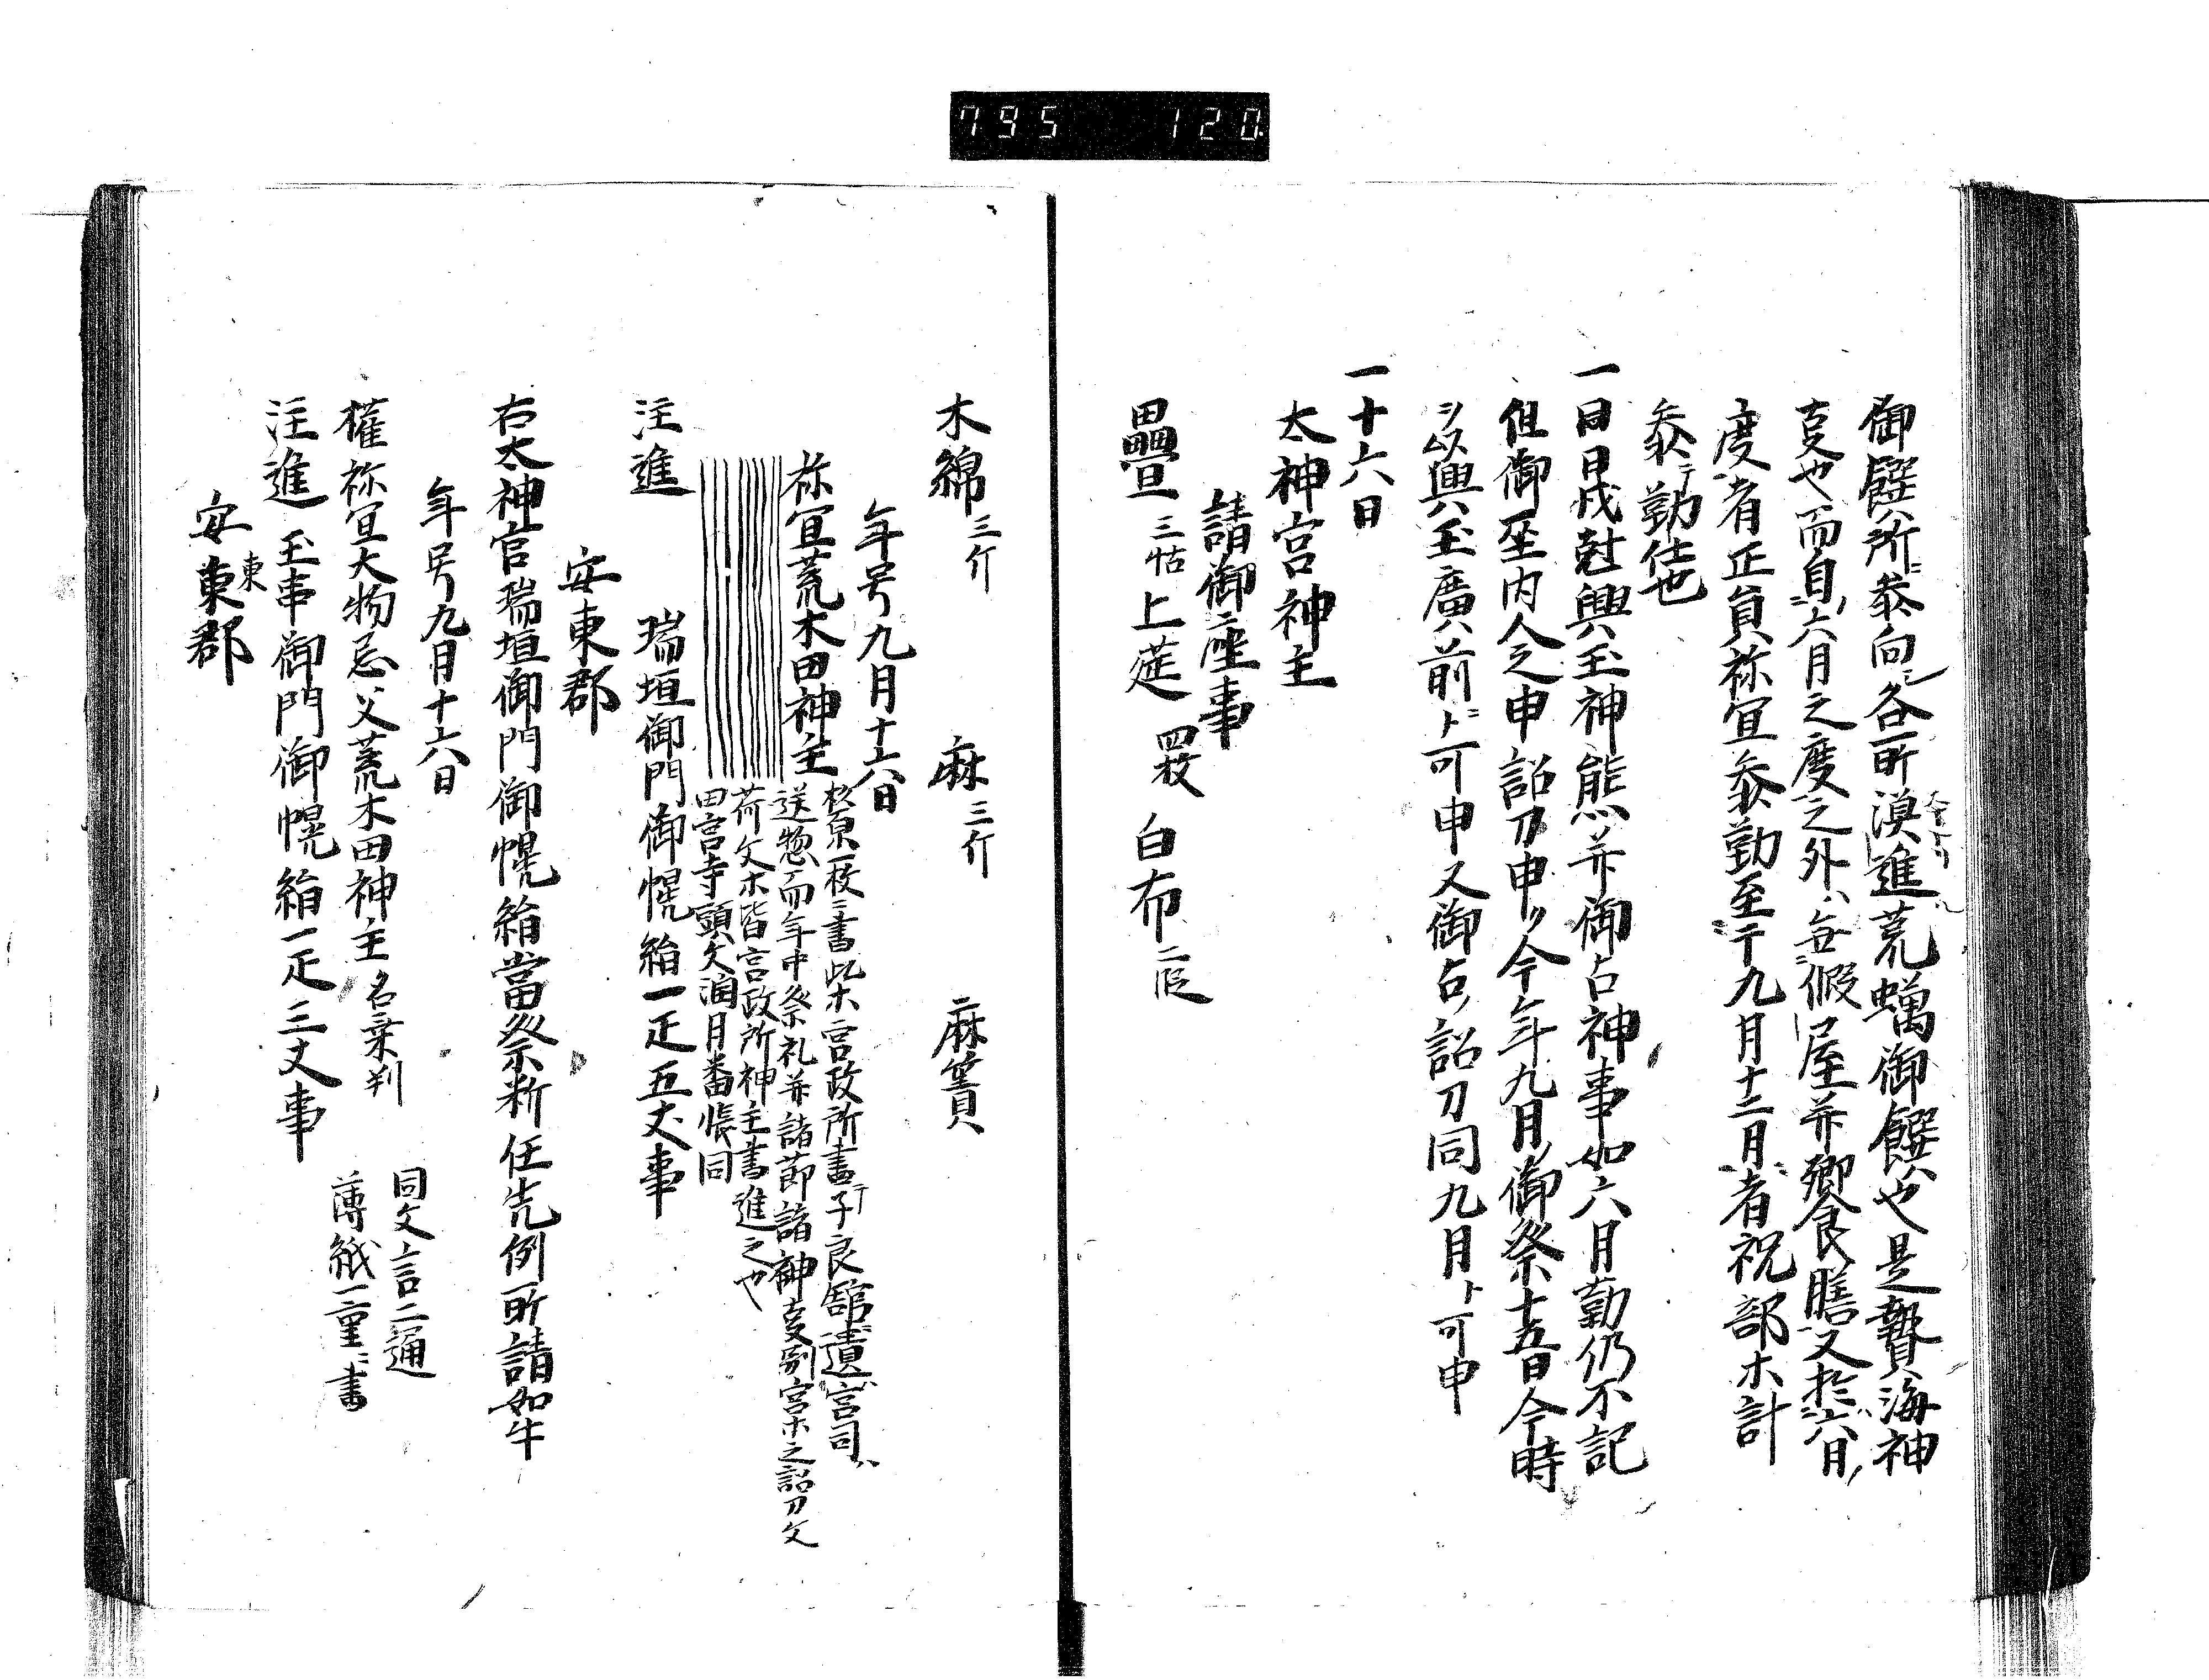 795 120
御饌所ニ参向、各所漁進荒蠣御饌也、是贄海神
叓也、而自六月之度之外ハ、無假屋并饗膳、又於六月ノ
度者正員祢宜参勤、至于九月十二月者祝部木計
参テ勤仕也
一同日戌尅興玉神態并御占神事如六月勤仍不記
但御巫内人之申詔刀申ク今年九月ノ御祭十五日今時
ヲ以興玉廣前ニト可申又御占ノ詔刀同九月ト可申
一十六日
太神宮神主
請御座事
疊 三帖 上莚 四枚 白布 二段
木綿 三斤 麻 三斤 麻簀
年号九月十六日
祢宜荒木田神主
松原一枚ニ書此木宮政所書テ子良舘ニ遣ハ宮司ハ
送惣而年中祭礼并諸節諸神叓別宮木之詔刀文
荷文木皆宮政所神主書進之也
田宮寺頭文潤月番帳同
注進 瑞垣御門御幌絹一疋五丈事
安東郡
右太神宮瑞垣御門御幌絹當祭料任先例所請如件
年号九月十六日
同文言二通
薄紙一重ニ書
權祢宜大物忌父荒木田神主 名乗判
注進 玉串御門御幌絹一疋三丈事
安東郡
東